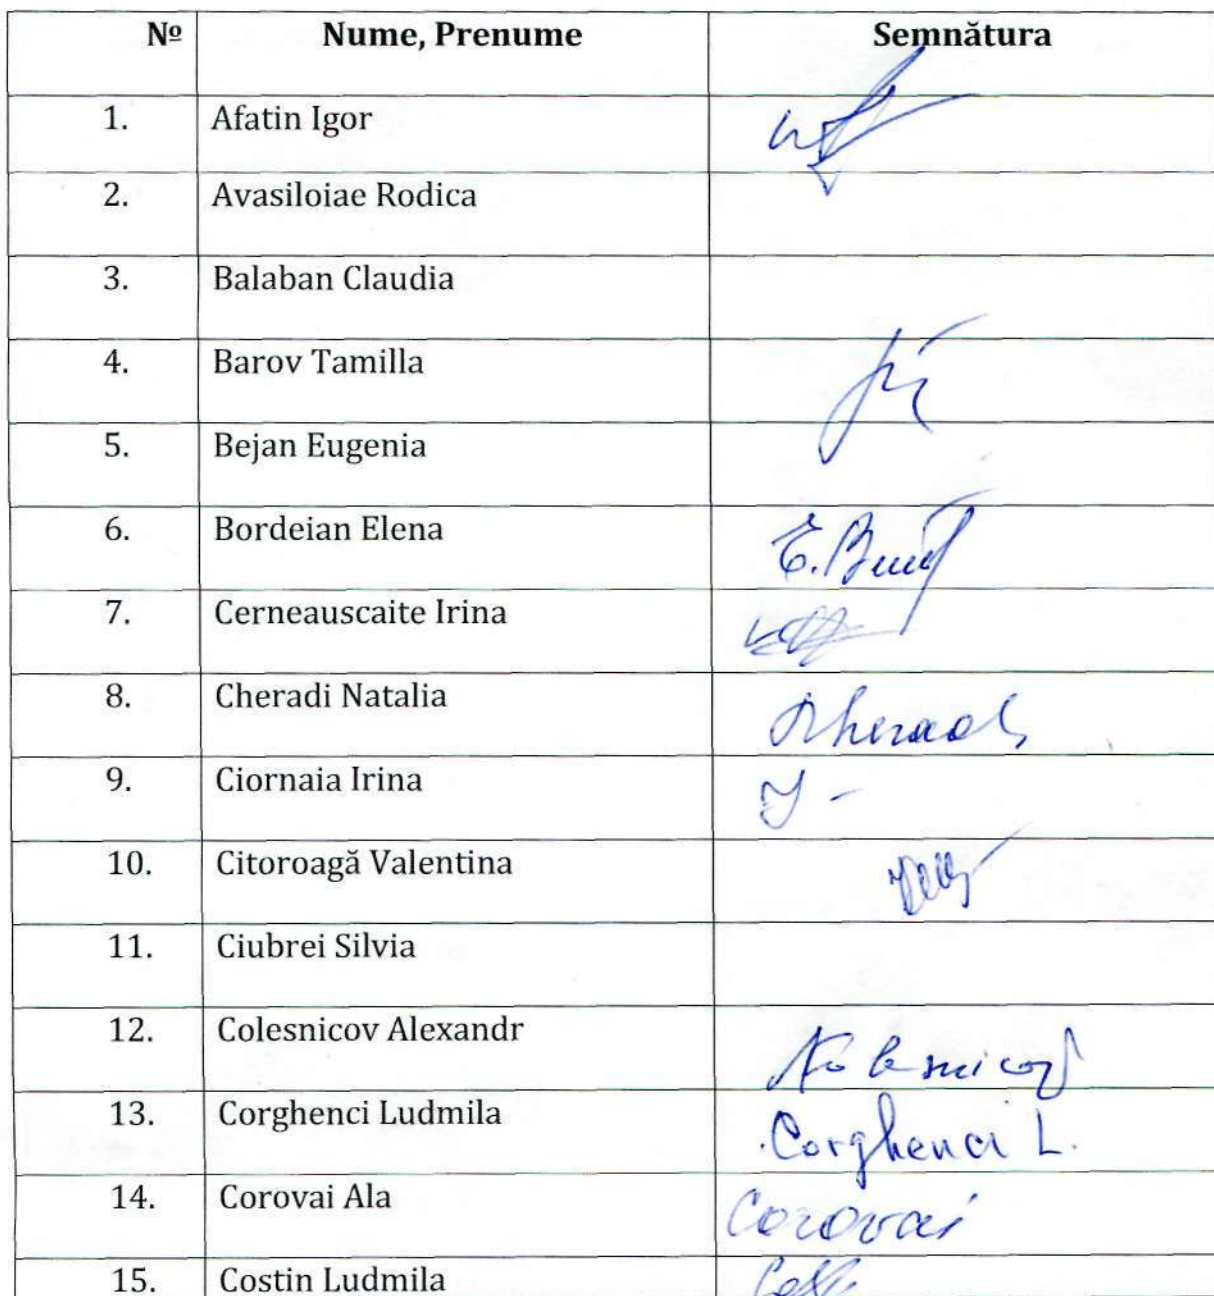 № Nume, Prenume Semnătura
1. Afatin Igor
2. Avasiloiae Rodica
3. Balaban Claudia
4. Barov Tamilla
5. Bejan Eugenia
6. Bordeian Elena
7. Cerneauscaite Irina
8. Cheradi Natalia
9. Ciornaia Irina
10. Citoroagă Valentina
11. Ciubrei Silvia
12. Colesnicov Alexandr
13. Corghenci Ludmila Corghenci L.
14. Corovai Ala Corovai
15. Costin Ludmila